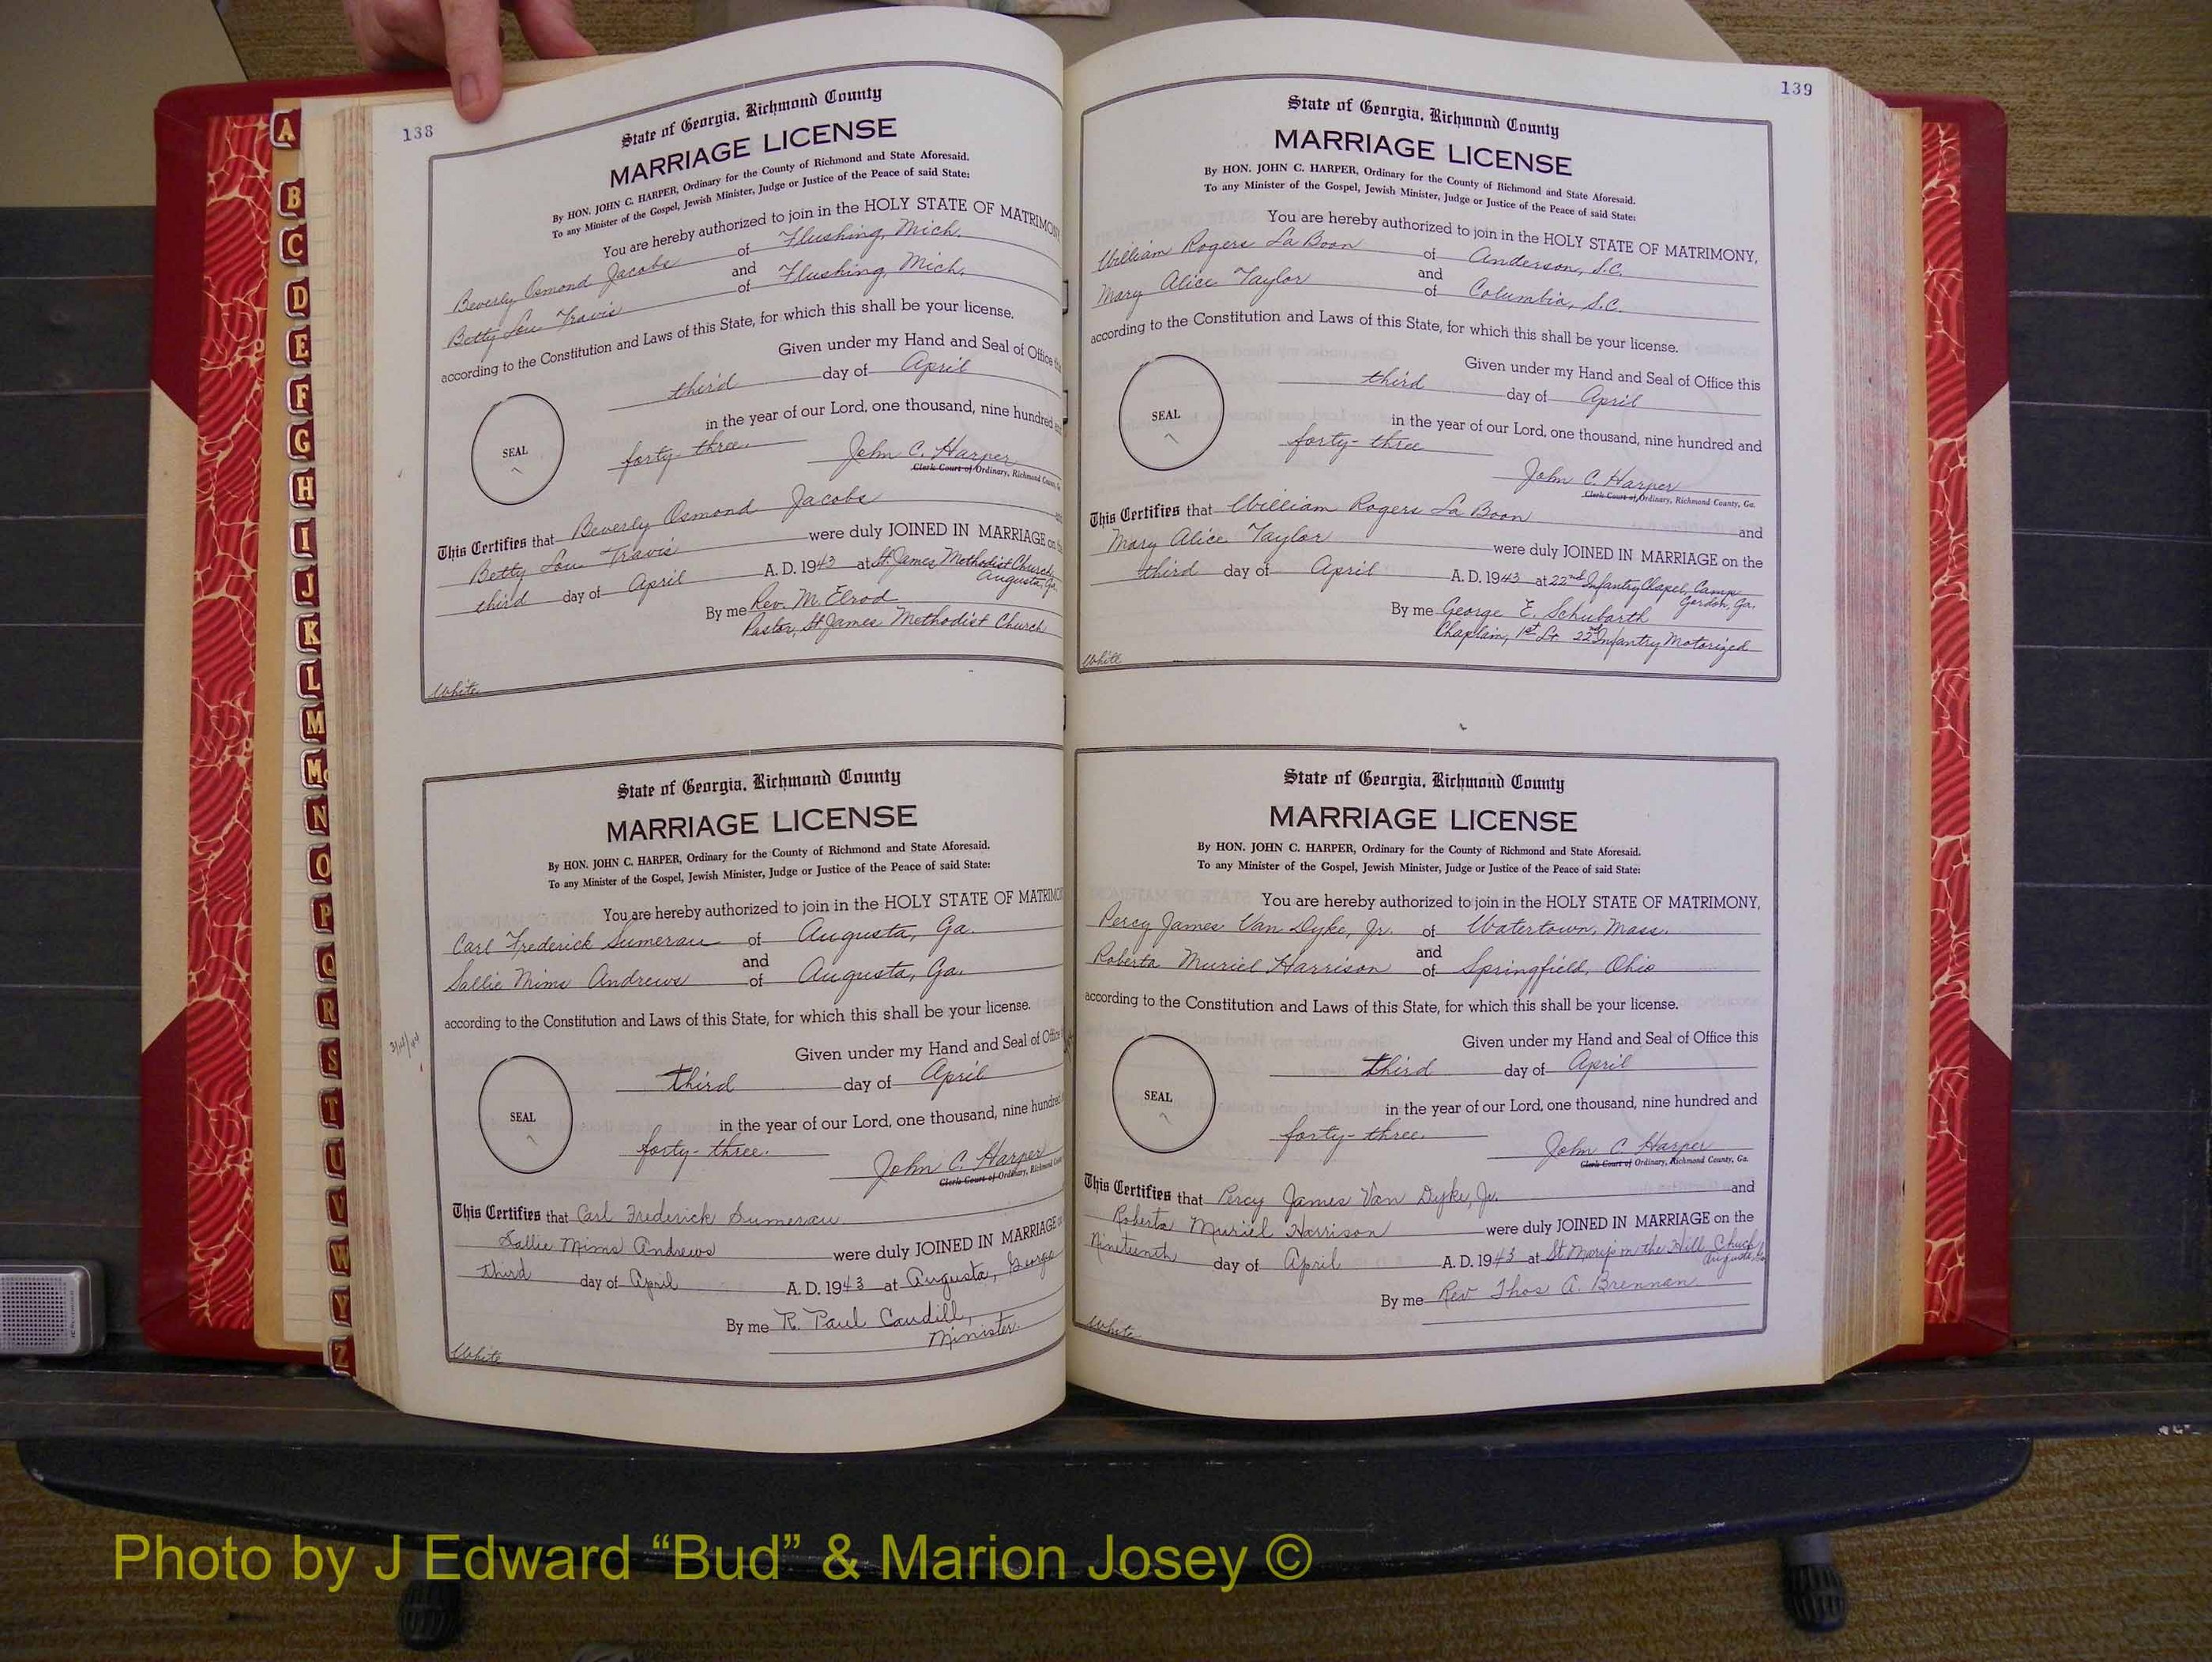 138
State of Georgia, Richmond County
MARRIAGE LICENSE
By HON. JOHN C. HARPER, Ordinary for the County of Richmond and State Aforesaid.
To any Minister of the Gospel, Jewish Minister, Judge or Justice of the Peace of said State:
You are hereby authorized to join in the HOLY STATE OF MATRIMONY
Beverly Osmond Jacobs of Flushing, Mich.
and
Betty Lou Travis of Flushing, Mich.
according to the Constitution and Laws of this State, for which this shall be your license.
Given under my Hand and Seal of Office
third day of April
SEAL
in the year of our Lord, one thousand, nine hundred
forty-three. John C. Harper
Clerk Court of Ordinary, Richmond County, Ga
This Certifies that Beverly Osmond Jacobs
Betty Lou Travis were duly JOINED IN MARRIAGE on
third day of April A. D. 1943 at St. James Methodist Church
Augusta, Ga.
By me Rev. M. Elrod
Pastor, St. James Methodist Church
White
State of Georgia, Richmond County
MARRIAGE LICENSE
By HON. JOHN C. HARPER, Ordinary for the County of Richmond and State Aforesaid.
To any Minister of the Gospel, Jewish Minister, Judge or Justice of the Peace of said State:
You are hereby authorized to join in the HOLY STATE OF MATRIMO
Carl Frederick Sumerau of Augusta, Ga.
and
Sallie Mims Andrews of Augusta, Ga.
according to the Constitution and Laws of this State, for which this shall be your license.
Given under my Hand and Seal of Office
third day of April
SEAL
in the year of our Lord, one thousand, nine hundred
forty-three. John C. Harper
Clerk Court of Ordinary, Richmond
This Certifies that Carl Frederick Sumerau
Sallie Mims Andrews were duly JOINED IN MARRIAGE
third day of April A. D. 1943 at Augusta, Georgia
By me R. Paul Caudill,
Minister
White
139
State of Georgia, Richmond County
MARRIAGE LICENSE
By HON. JOHN C. HARPER, Ordinary for the County of Richmond and State Aforesaid.
To any Minister of the Gospel, Jewish Minister, Judge or Justice of the Peace of said State:
You are hereby authorized to join in the HOLY STATE OF MATRIMONY,
William Rogers La Boon of Anderson, S.C.
and
Mary Alice Taylor of Columbia, S.C.
according to the Constitution and Laws of this State, for which this shall be your license.
Given under my Hand and Seal of Office this
third day of April
SEAL
in the year of our Lord, one thousand, nine hundred and
forty-three John C. Harper
Clerk Court of Ordinary, Richmond County, Ga.
This Certifies that William Rogers La Boon and
Mary Alice Taylor were duly JOINED IN MARRIAGE on the
third day of April A. D. 1943 at 22nd Infantry Chapel, Camp
Gordon, Ga.
By me George E. Schubarth
Chaplain, 1st Lt 22nd Infantry Motorized
White
State of Georgia, Richmond County
MARRIAGE LICENSE
By HON. JOHN C. HARPER, Ordinary for the County of Richmond and State Aforesaid.
To any Minister of the Gospel, Jewish Minister, Judge or Justice of the Peace of said State:
You are hereby authorized to join in the HOLY STATE OF MATRIMONY,
Percy James Van Dyke, Jr. of Watertown, Mass.
and
Roberta Muriel Harrison of Springfield, Ohio
according to the Constitution and Laws of this State, for which this shall be your license.
Given under my Hand and Seal of Office this
third day of April
SEAL
in the year of our Lord, one thousand, nine hundred and
forty-three. John C. Harper
Clerk Court of Ordinary, Richmond County, Ga.
This Certifies that Percy James Van Dyke, Jr. and
Roberta Muriel Harrison were duly JOINED IN MARRIAGE on the
Nineteenth day of April A. D. 1943 at St. Mary's on the Hill Church
Augusta, Ga
By me Rev Thos A. Brennan
White
A
B
C
D
E
F
G
H
I
J
K
L
M
Mc
N
O
P
Q
R
S
T
U
V
W
Y
Z
Photo by J Edward “Bud” & Marion Josey ©